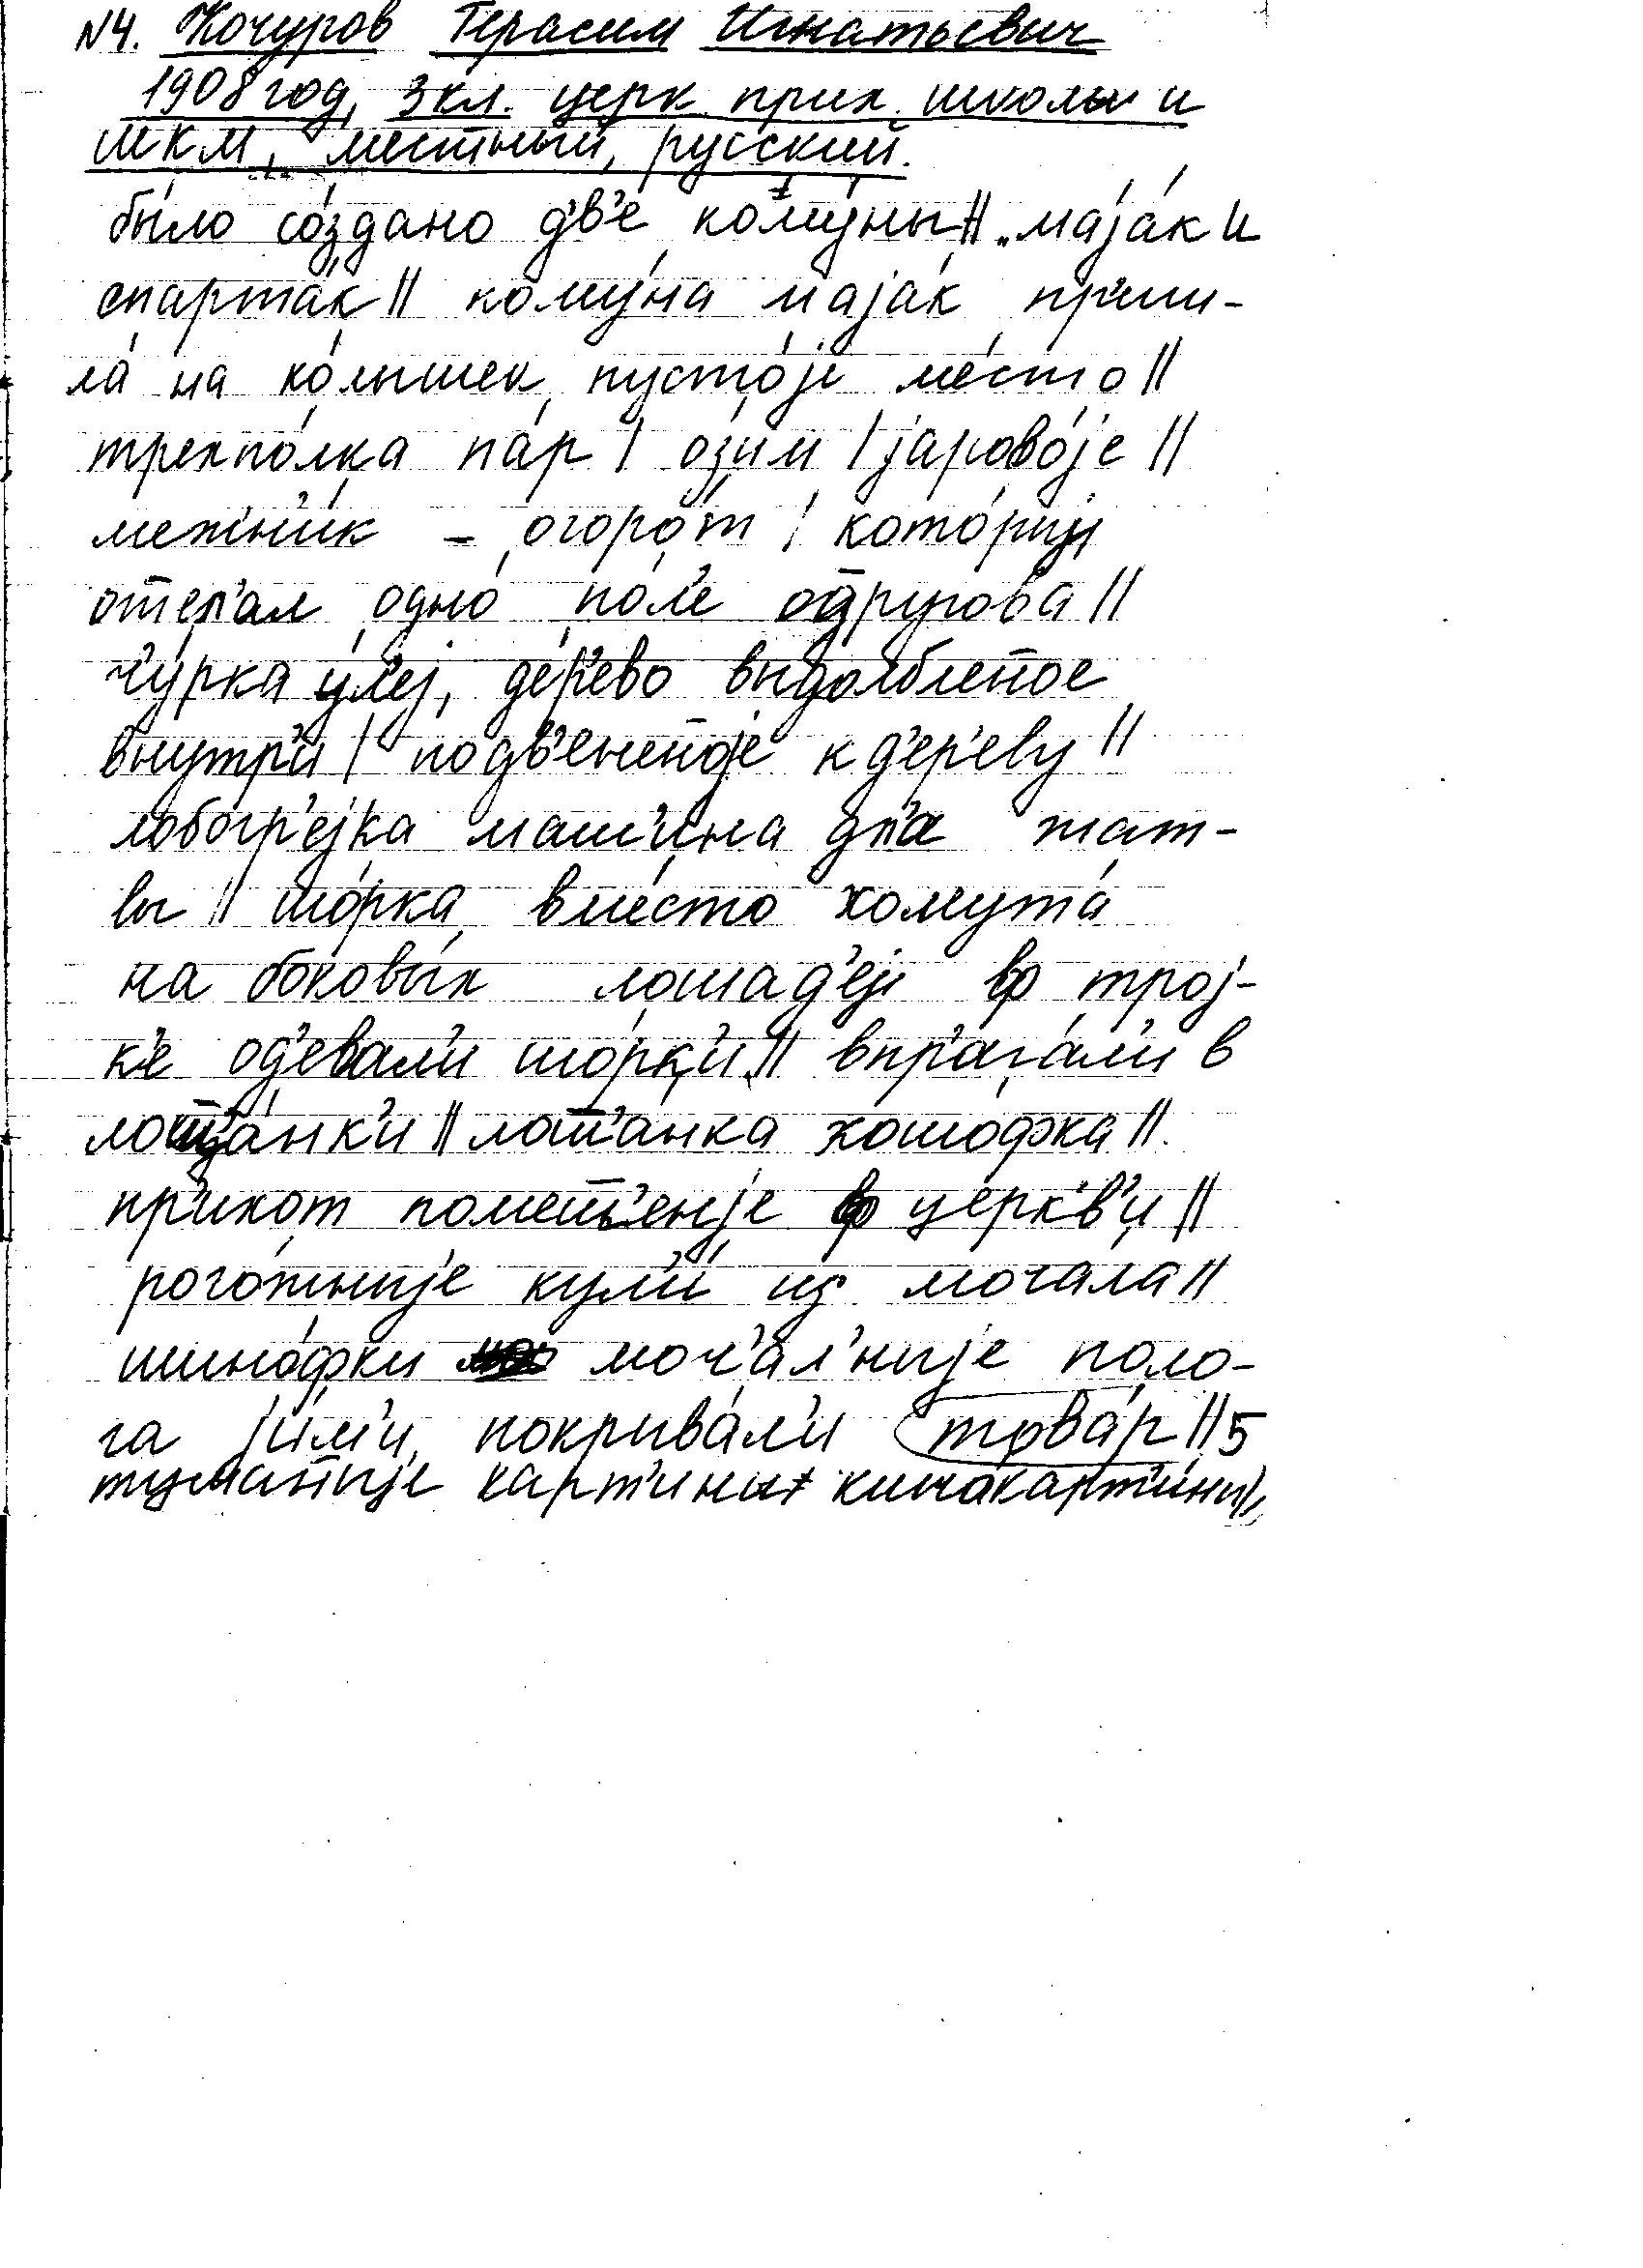 №4. Кочуров Герасим Игнатьевич
1908 год, 3 кл. церк. прих. школы и
ШКМ, местный, русский.
бы́ло со́здано д'в'е́ кому́ны || „мајак и
спарта́к || кому́на маја́к приш-
ла́ на ко́лышек, пусто́јь ме́сто ||
трехпо́лка па́р | ози́м | јарово́је ||
межн'и́к – огоро́т | кото́рыј
отел'ал одно́ по́л'е о̄друго́ва ||
ч'у́рка у́л'еј, де́р'ево выдолблен̄ое
внутр'и́ | подв'ешен̄оје к д'е́р'еву ||
лобогр'е́јка маши́на дл'а жат-
вы || шо́рка вме́сто хомута́
на боковы́х лошад'е́ј в трој-
к'е од'ева́л'и шо́рк'и || впр'ага́л'и в
лош̄а́нк'и || лош̄'а́нка кошофка ||
пр'ихот помеш̄'е́нје в це́рк'в'и ||
рого́жныје кул'и́ из моча́ла ||
шино́фки моч'а́л'ныје поло-
га јими покрыва́л'и това́р || 5
тума́н̄ыје карт'и́ны кинокарт'и́ны ||